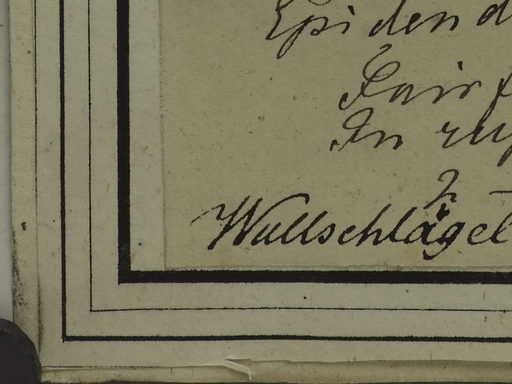 Epidend
Fairf
In rup
2
Wullschlägel